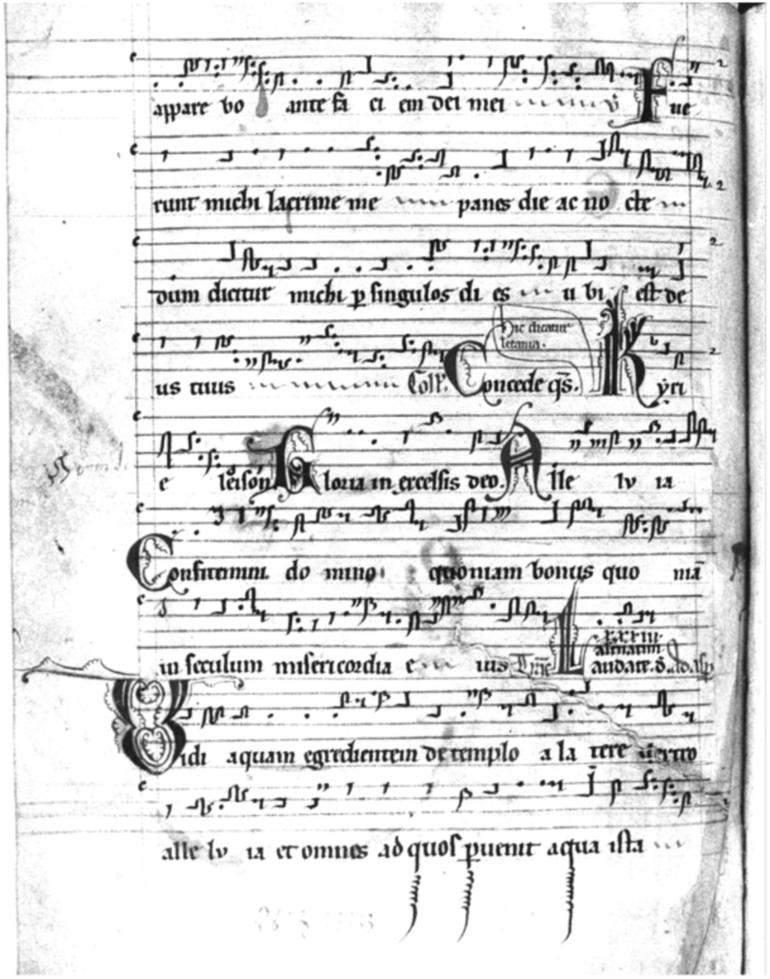 appare bo ante fa ci em dei mei ℣ Fue
runt michi lacrime me panes die ac no cte
dum dicitur michi p singulos di es u bi est de
Hic dicatur
letania.
us tuus Coll'. Concede qs. Kyri
e leison Gloria in excelsis deo. Alle lu ia
Confitemini do mino quoniam bonus quo niā
in seculum misericordia e ius Laudate.
Vidi aquam egredientem de templo a la tere
alle lu ia et omnes ad quos puenit aqua ista